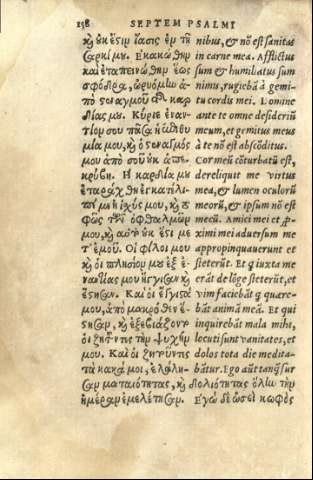 158 SEPTEM PSALMI
καὶ οὐκ ἔστιν ἴασις ἐν τῇ
σαρκί μου. Ἐκακώθην
καὶ ἐταπεινώθην ἕως
σφόδρα, ὠρυόμην ἀ-
πὸ στεναγμοῦ τῆς καρ
δίας μου. Κύριε ἐναν-
τίον σου πᾶσα ἡ ἐπιθυ
μία μου, καὶ ὁ στεναγμός
μου ἀπὸ σοῦ οὐκ ἀπε-
κρύβη. Ἡ καρδία μου
ἐταράχθη ἐγκατέλι-
πέ με ἡ ἰσχύς μου, καὶ τὸ
φῶς τῶν ὀφθαλμῶν
μου, καὶ αὐτὸ οὐκ ἔστι με
τ' ἐμοῦ. Οἱ φίλοι μου
καὶ οἱ πλησίον μου ἐξ ἐ-
ναντίας μου ἤγγισαν καὶ
ἔστησαν. Καὶ οἱ ἔγγιστά
μου, ἀπὸ μακρόθεν ἔ-
στησαν, καὶ ἐξεβιάζοντο
οἱ ζητοῦντες τὴν ψυχήν
μου. Καὶ οἱ ζητοῦντες
τὰ κακά μοι, ἐλάλη-
σαν ματαιότητας, καὶ δολιότητας ὅλην τὴν
ἡμέραν ἐμελέτησαν. Ἐγὼ δὲ ὡσεὶ κωφὸς
nibus, & nō est sanitas
in carne mea. Afflictus
sum & humiliatus sum
nimis, rugiebā à gemi-
tu cordis mei. Domine
ante te omne desideriū
meum, et gemitus meus
à te nō est abscōditus.
Cor meū cōturbatū est,
dereliquit me virtus
mea, & lumen oculorū
meorū, & ipsum nō est
mecū. Amici mei et p̄r
ximi mei aduersum me
appropinquauerunt et
steterūt. Et q iuxta me
erāt de lōge steterūt, et
vim faciebāt q quære-
bāt animā meā. Et qui
inquirebāt mala mihi,
locuti sunt vanitates, et
dolos tota die medita-
bātur. Ego aūt tanq̄ sur